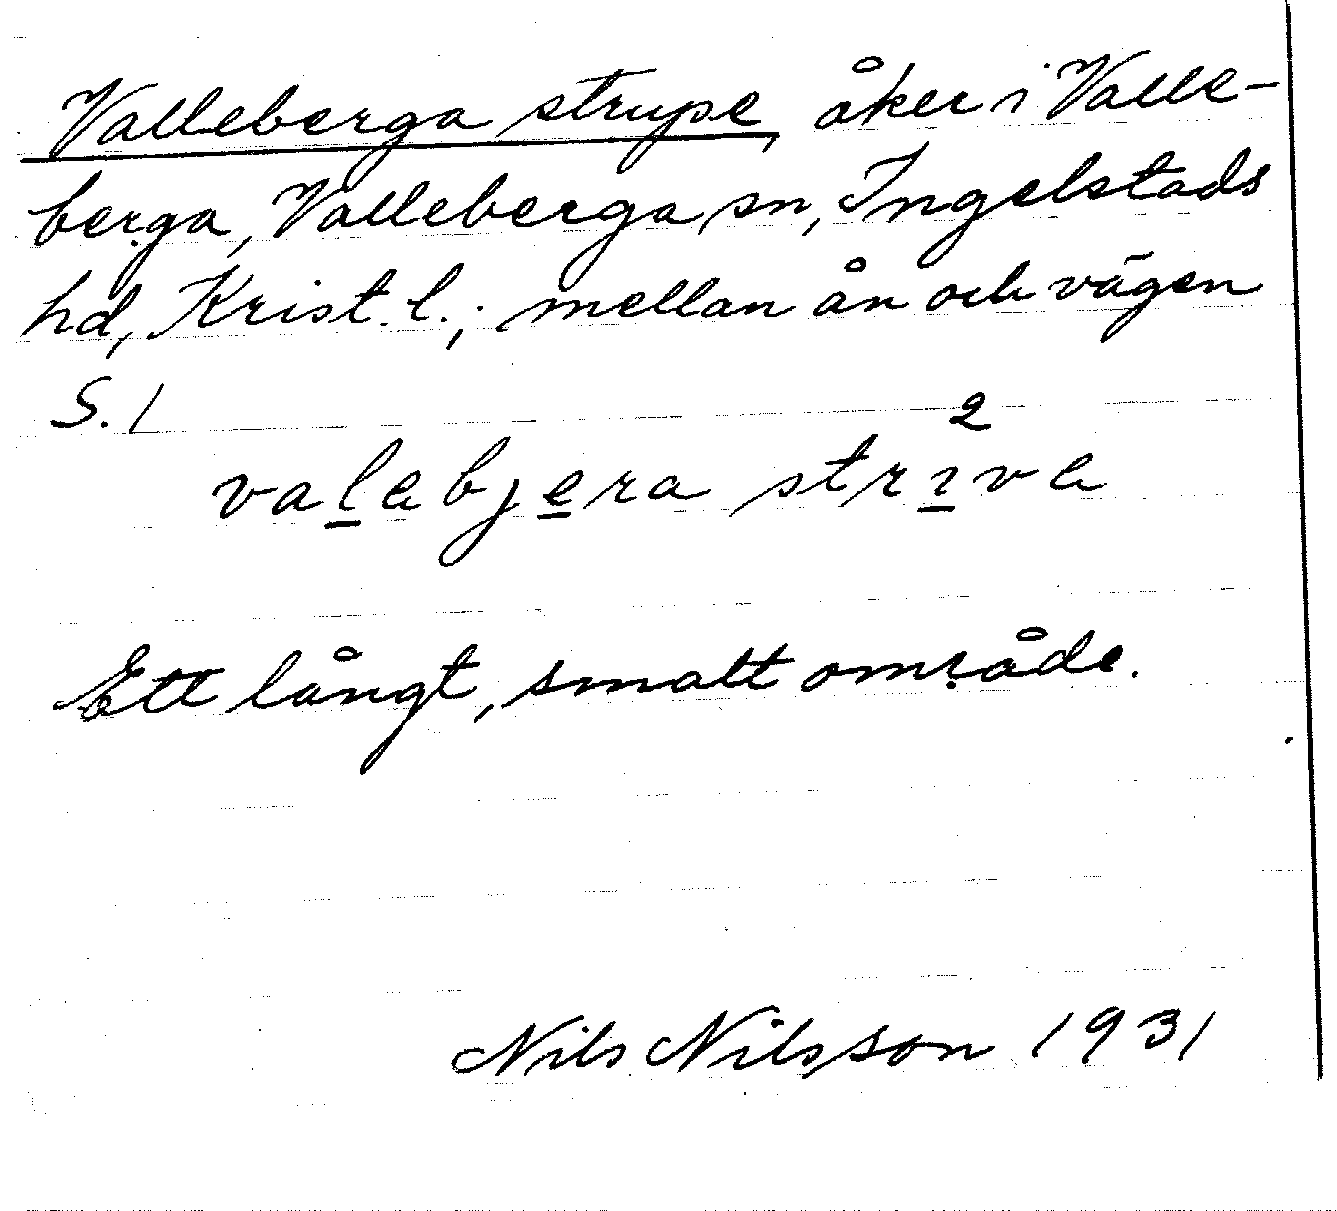 Valleberga strupe, åker i Valle-
berga, Valleberga sn, Ingelstads
hd, Krist. l.; mellan ån och vägen
S. 1
valabjera strıva 2
Ett långt, smalt område.
Nils Nilsson 1931